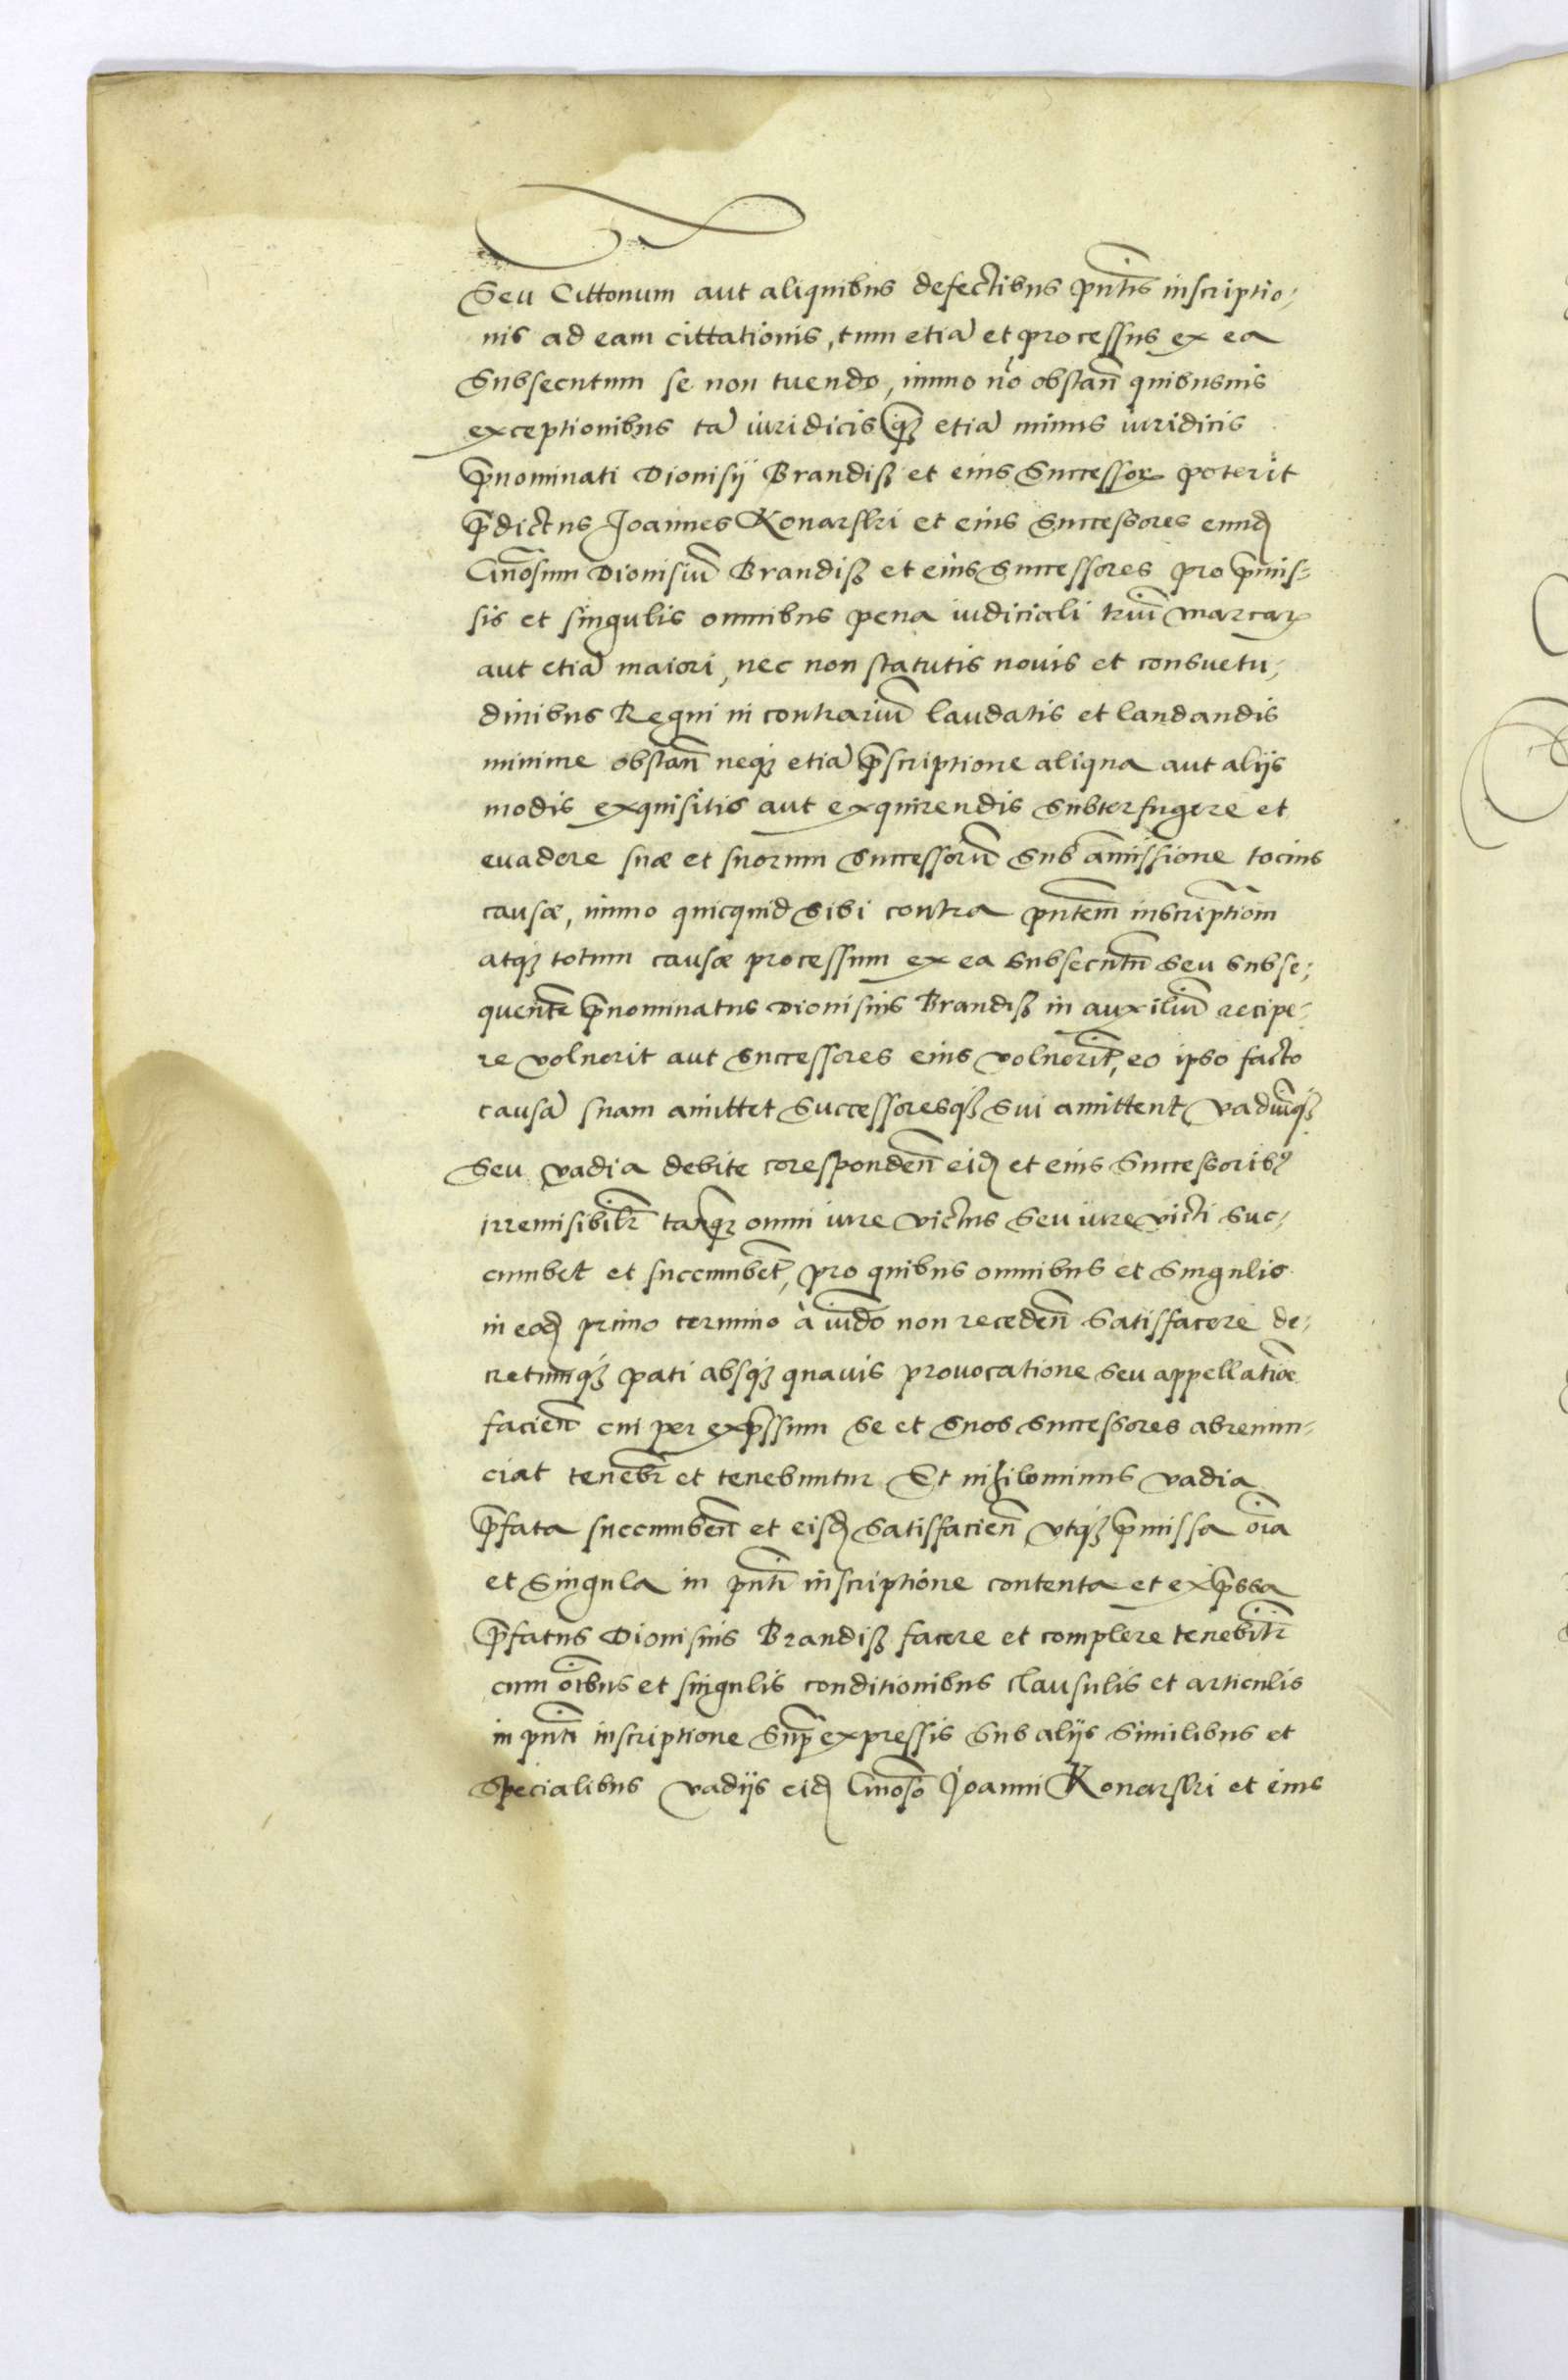 Seu Cittonum aut aliquibus defectibus pn̄tis inscriptio-
nis ad eam cittationis, tum etiā et processus ex ea
Subsecutum se non tuendo, immo nō obstan̄ quibusuis
exceptionibus tā iuridicis q̄ꝫ etiā minus iuridicis
p̄nominati Dionisij Brandiß et eius Successorꝝ poterit
p̄dictus Joannes Konarski et eius Successores eundꝫ
Gn̄osum Dionisiū Brandiß et eius Successores pro p̄mis-
sis et singulis omnibus pena iudiciali triū marcarꝝ
aut etiā maiori, nec non statutis nouis et consuetu-
dinibus Regni in contrariū laudatis et laudandis
minime obstan̄ neqꝫ etiā p̄scriptione aliqua aut alijs
modis exquisitis aut exquirendis Subterfugere et
euadere suæ et suorum Successorū Sub amissione tocius
causæ, immo quicquid Sibi contra pn̄tem inscriptiōm
atqꝫ totum causæ processum ex ea Subsecutū Seu Subse-
quentē p̄nominatus Dionisius Brandiß in auxiliū recipe-
re voluerit aut Successores eius voluerīt, eo ipso facto
causā suam amittet Successoresqꝫ Sui amittent, vadiūqꝫ
Seu vadia debite corespondeñ eidꝫ et eius Successoribꝰ
irremisibilr̄ tanq̄ꝫ omni iure victus Seu iure victi Suc-
cumbet et succumbēt, pro quibus omnibus et Singulis
in eodꝫ primo termino à iudō non recedeñ Satisfacere de-
cretumqꝫ pati absqꝫ quauis prouocatione Seu appellatiōe
facieñ cui per exp̄ssum Se et Suos Successores abrenun-
ciat tenebr̄ et tenebuntur. Et nihilominus vadia
p̄fata succumbeñ et eisdꝫ Satisfacieñ vtqꝫ p̄missa oīa
et Singula in pn̄ti inscriptione contenta et exp̄ssa
p̄fatus Dionisius Brandiß facere et complere tenebitr̄
cum oībus et singulis conditionibus clausulis et articulis
in pn̄ti inscriptione Sup̄ expressis Sub alijs Similibus et
Specialibus vadijs eidꝫ Gn̄oso Joanni Konarski et eius